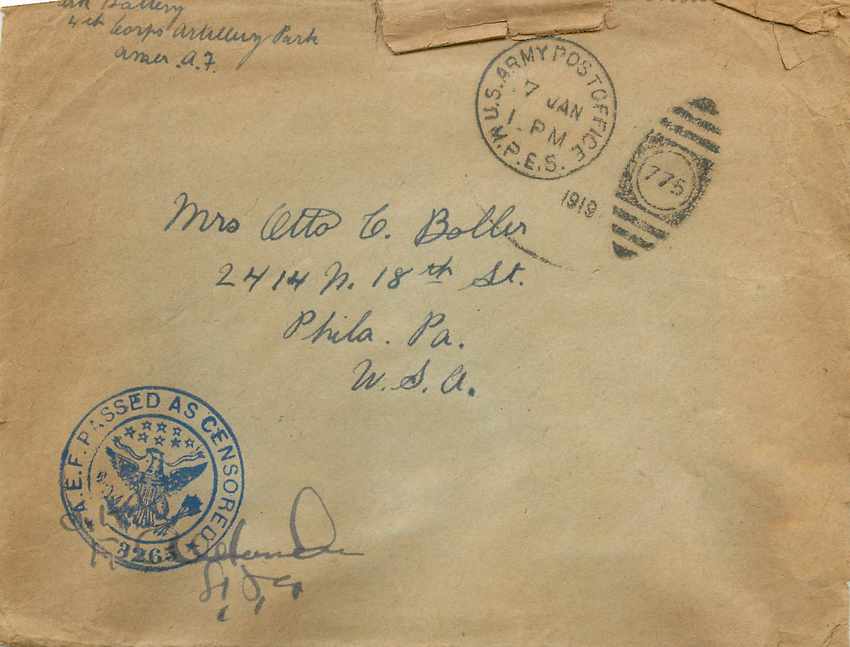 Park Battery
4th Corps Artillery Park
Amer. A.F.
U.S. ARMY POST OFFICE
M.P.E.S.
7 JAN
1 PM
1919
775
Mrs Otto C. Boller
2414 N. 18th St.
Phila. Pa.
U.S.A.
A.E.F. PASSED AS CENSORED
3265